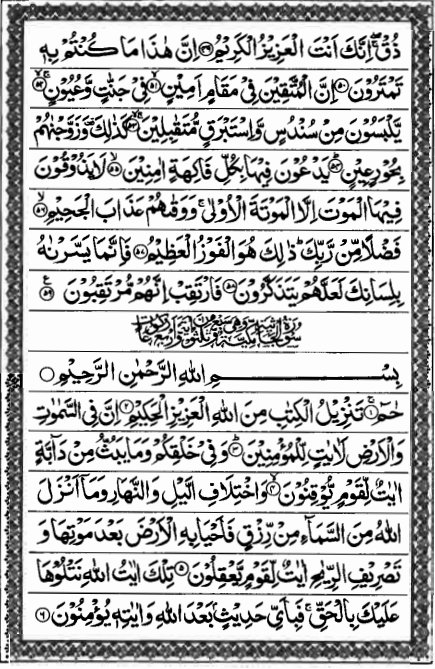 ذُقْ ۙۚ اِنَّكَ اَنْتَ الْعَزِيْزُ الْكَرِيْمُ ﴿۴۹﴾ اِنَّ هٰذَا مَا كُنْتُمْ بِهٖ
تَمْتَرُوْنَ ﴿۵۰﴾ اِنَّ الْمُتَّقِيْنَ فِيْ مَقَامٍ اَمِيْنٍ ﴿۵۱﴾ فِيْ جَنّٰتٍ وَّعُيُوْنٍ ﴿۵۲﴾
يَّلْبَسُوْنَ مِنْ سُنْدُسٍ وَّاِسْتَبْرَقٍ مُّتَقٰبِلِيْنَ ﴿۵۳﴾ كَذٰلِكَ وَزَوَّجْنٰهُمْ
بِحُوْرٍ عِيْنٍ ﴿۵۴﴾ يَدْعُوْنَ فِيْهَا بِكُلِّ فَاكِهَةٍ اٰمِنِيْنَ ﴿۵۵﴾ لَا يَذُوْقُوْنَ
فِيْهَا الْمَوْتَ اِلَّا الْمَوْتَةَ الْاُوْلٰى ۚ وَوَقٰىهُمْ عَذَابَ الْجَحِيْمِ ﴿۵۶﴾
فَضْلًا مِّنْ رَّبِّكَ ؕ ذٰلِكَ هُوَ الْفَوْزُ الْعَظِيْمُ ﴿۵۷﴾ فَاِنَّمَا يَسَّرْنٰهُ
بِلِسَانِكَ لَعَلَّهُمْ يَتَذَكَّرُوْنَ ﴿۵۸﴾ فَارْتَقِبْ اِنَّهُمْ مُّرْتَقِبُوْنَ ﴿۵۹﴾ ع
سورة الجاثية مكية وهي سبع وثلثون اية
بِسْمِ اللهِ الرَّحْمٰنِ الرَّحِيْمِ
حٰمٓ ﴿۱﴾ تَنْزِيْلُ الْكِتٰبِ مِنَ اللهِ الْعَزِيْزِ الْحَكِيْمِ ﴿۲﴾ اِنَّ فِي السَّمٰوٰتِ
وَالْاَرْضِ لَاٰيٰتٍ لِّلْمُؤْمِنِيْنَ ﴿۳﴾ وَفِيْ خَلْقِكُمْ وَمَا يَبُثُّ مِنْ دَآبَّةٍ
اٰيٰتٌ لِّقَوْمٍ يُّوْقِنُوْنَ ﴿۴﴾ وَاخْتِلَافِ الَّيْلِ وَالنَّهَارِ وَمَآ اَنْزَلَ
اللهُ مِنَ السَّمَآءِ مِنْ رِّزْقٍ فَاَحْيَا بِهِ الْاَرْضَ بَعْدَ مَوْتِهَا وَ
تَصْرِيْفِ الرِّيٰحِ اٰيٰتٌ لِّقَوْمٍ يَّعْقِلُوْنَ ﴿۵﴾ تِلْكَ اٰيٰتُ اللهِ نَتْلُوْهَا
عَلَيْكَ بِالْحَقِّ ۚ فَبِاَيِّ حَدِيْثٍۢ بَعْدَ اللهِ وَاٰيٰتِهٖ يُؤْمِنُوْنَ ﴿۶﴾